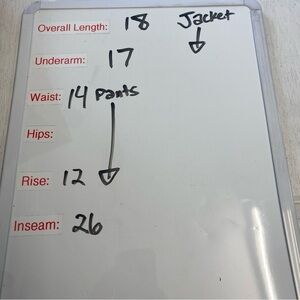 Overall Length: 18 Jacket
Underarm: 17
Waist: 14 Pants
Hips:
Rise: 12
Inseam: 26